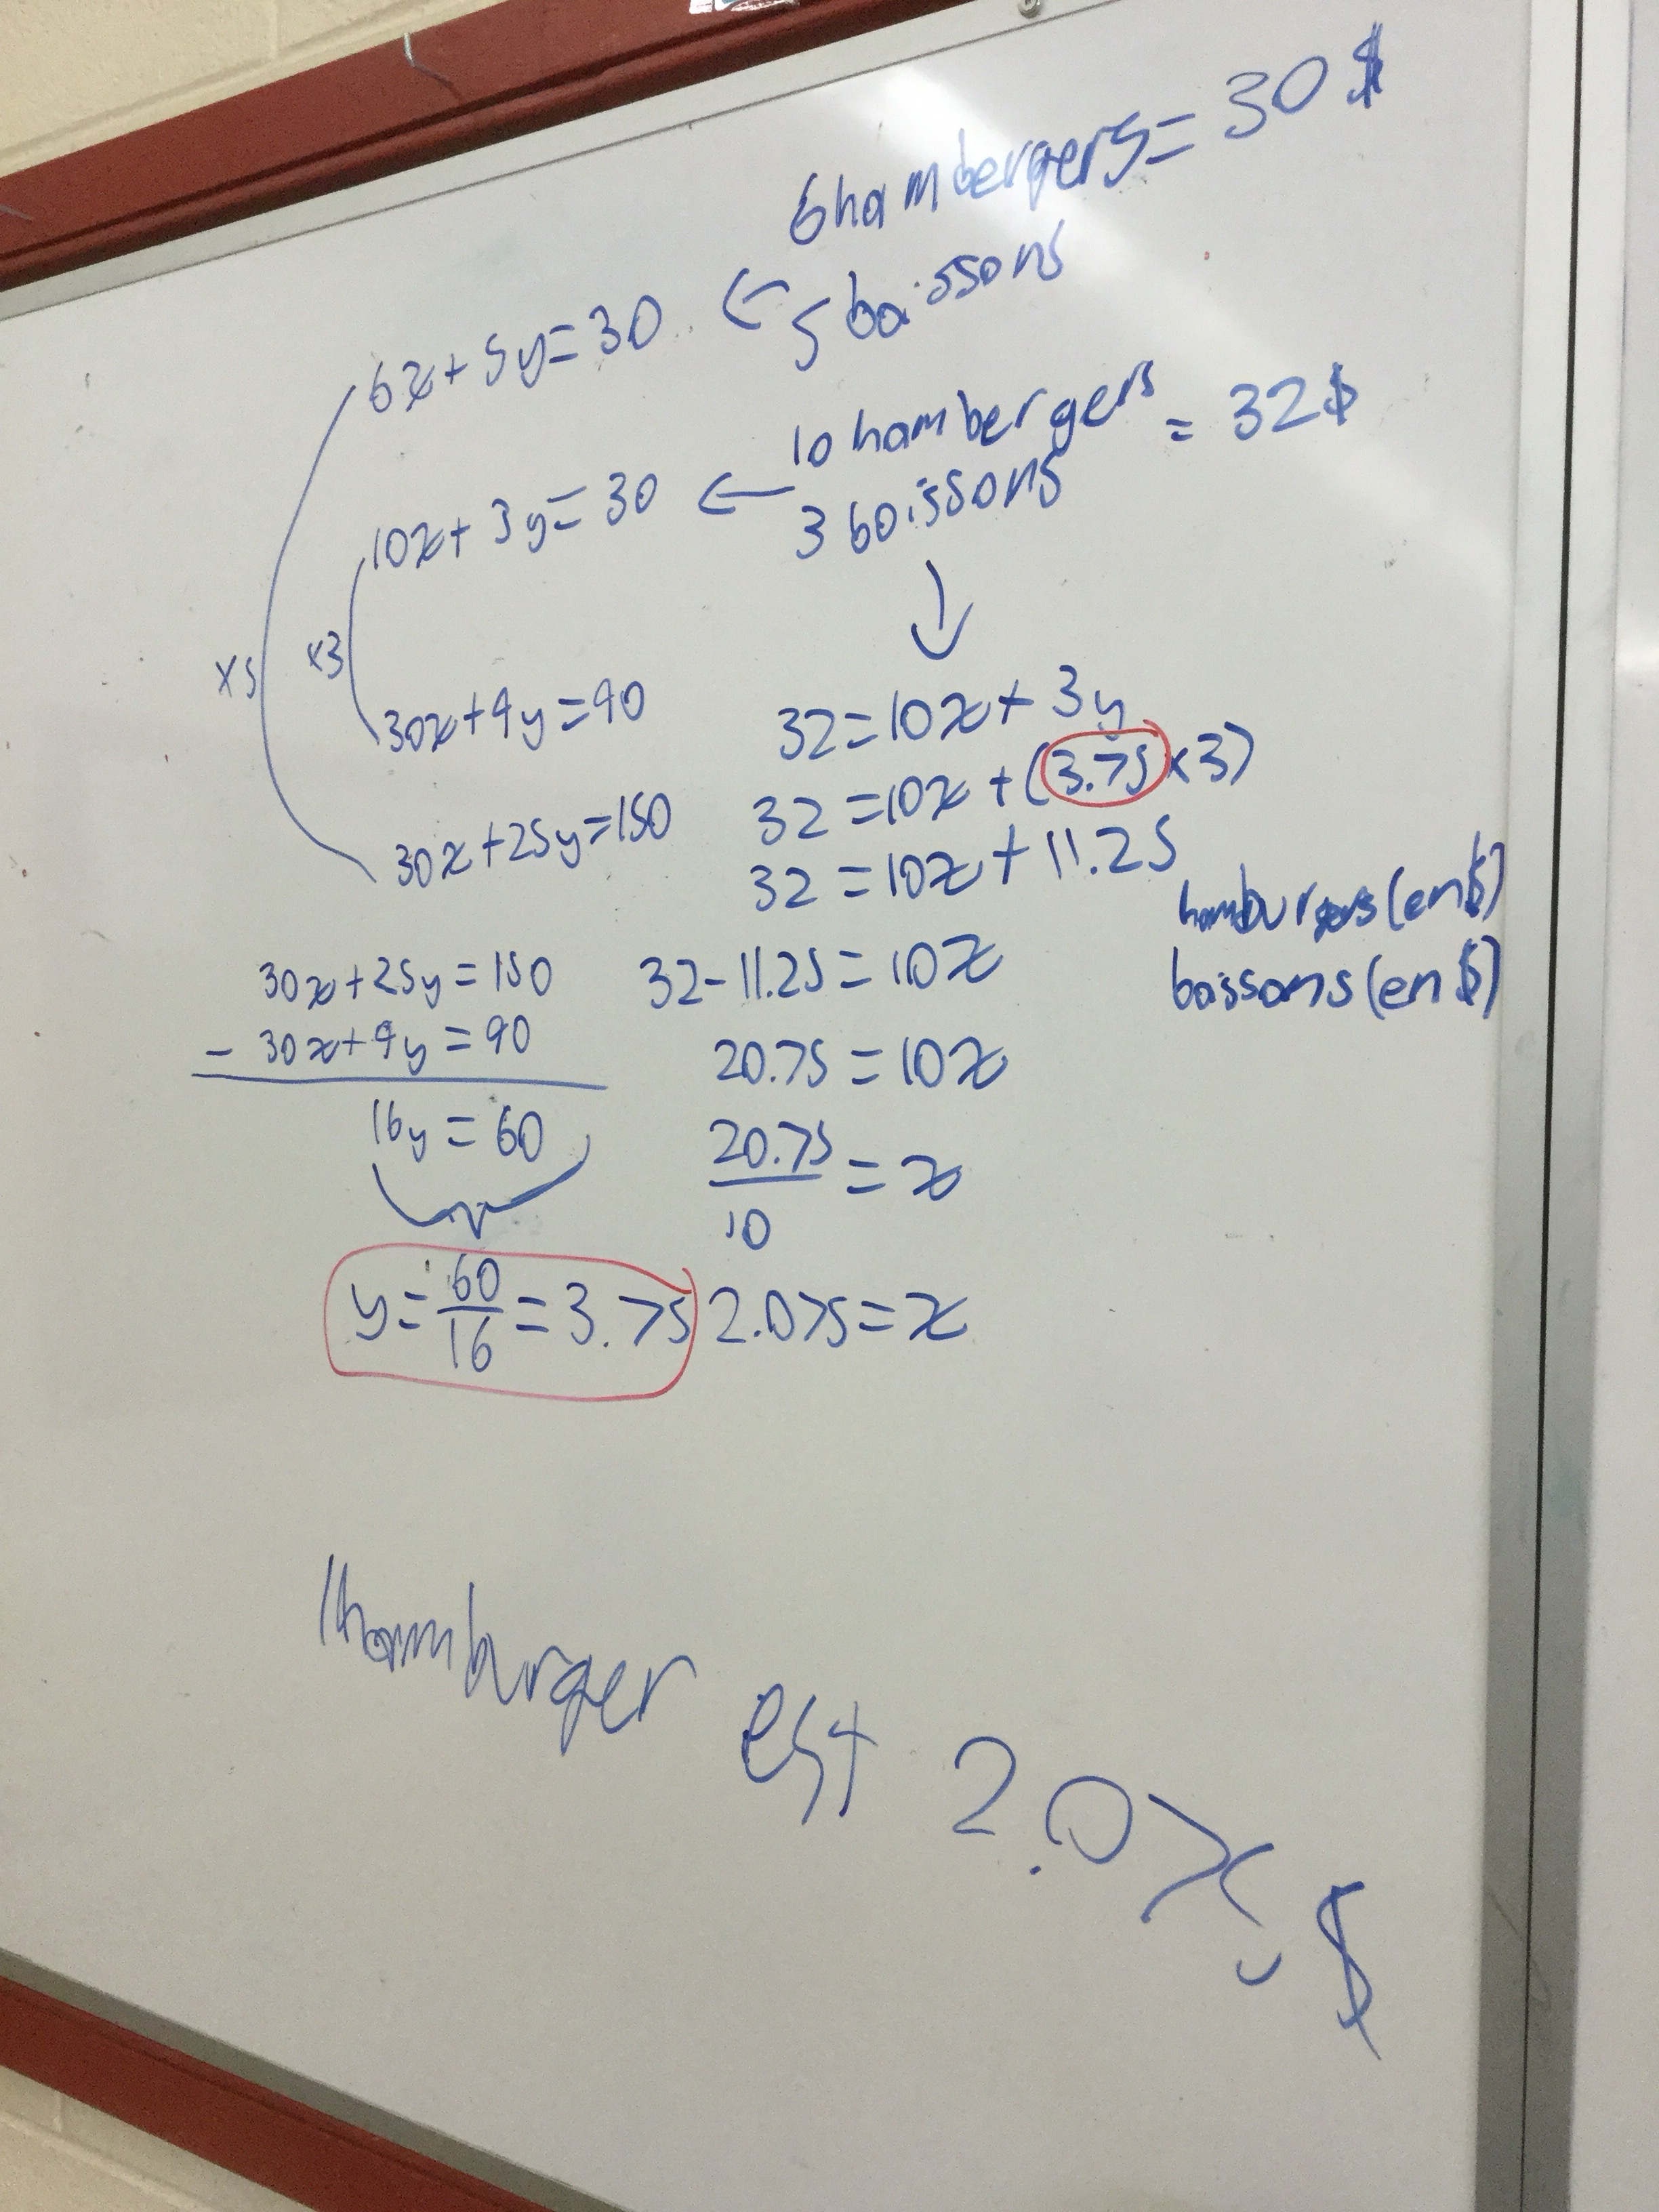 6 hambergers = 30 $
5 boissons
6x + 5y = 30 ←
10 hambergers = 32 $
3 boissons
10x + 3y = 30 ←
x5
x3
30x + 9y = 90
30x + 25y = 150
30x + 25y = 150
- 30x + 9y = 90
16y = 60
y = 60/16 = 3.75
↓
32 = 10x + 3y
32 = 10x + (3.75 x 3)
32 = 10x + 11.25
32 - 11.25 = 10x
20.75 = 10x
20.75/10 = x
2.075 = x
hamburgers (en $)
boissons (en $)
1 hamburger est 2.075 $